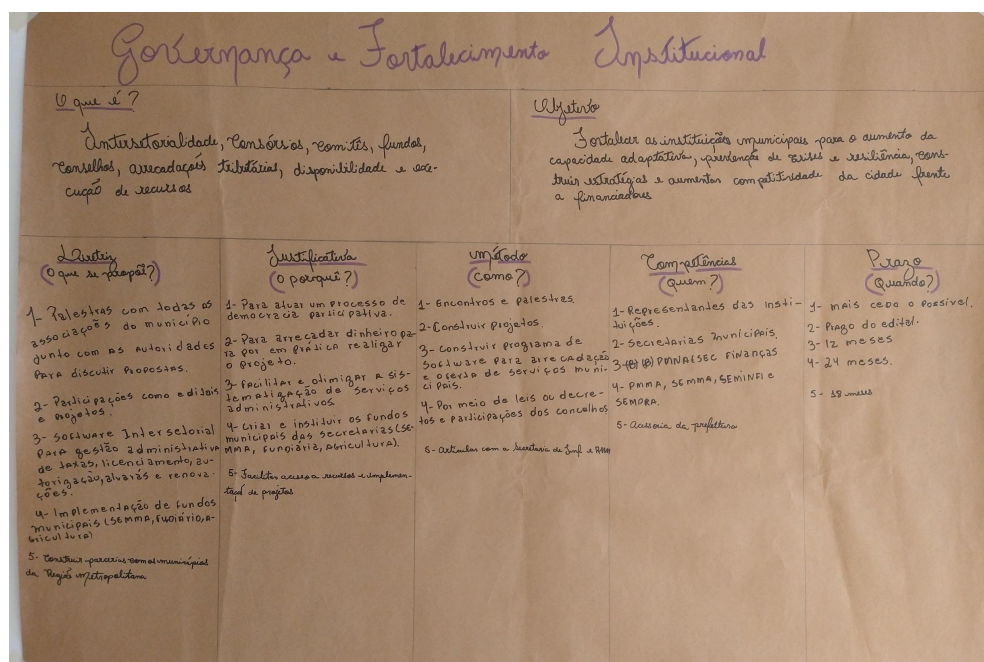 Governança e Fortalecimento Institucional
O que é?
Intersetorialidade, Consórsios, Comitês, fundos,
Conselhos, arrecadações tributárias, disponibilidade e exe-
cução de recursos
Objetivo
Fortalecer as instituições municipais para o aumento da
capacidade adaptativa, prevenção de crises e resiliência, cons-
truir estratégias e aumentar competitividade da cidade frente
a financiadores
Diretriz
(O que se propõe?)
1- Palestras com todas as
associações do município
junto com as autoridades
para discutir propostas.
2- Participações como editais
e projetos.
3- Software Intersetorial
para gestão administrativa
de taxas, licenciamento, au-
torização, alvarás e renova-
ções.
4- Implementação de fundos
municipais (SEMMA, Fudiário, a-
gricultura)
5- Construir parcerias com os municípios
da Região Metropolitana
Justificativa
(O porquê?)
1- Para atuar um processo de
democracia participativa.
2- Para arrecadar dinheiro pa-
ra por em prática realizar
o projeto.
3- Facilitar e otimizar a sis-
tematização de serviços
administrativos.
4- Criar e instituir os fundos
municipais das secretarias (SE-
MMA, Fundiária, Agricultura).
5- Facilitar acesso a recursos e implemen-
tação de projetos
Método
(Como?)
1- Encontros e palestras.
2- Construir projetos.
3- Construir programa de
software para arrecadação
e oferta de serviços muni-
cipais.
4- Por meio de leis ou decre-
tos e participações dos concelhos
5- Articular com a Secretaria de
Competências
(quem?)
1- Representantes das insti-
tuições.
2- Secretarias Municipais.
3- PMMA/SEC FINANÇAS
4- PMMA, SEMMA, SEMINFI e
SEMDRA.
5- Acessoria da prefeitura
Prazo
(Quando?)
1- Mais cedo o possível.
2- Prazo do edital.
3- 12 meses
4- 24 meses.
5- 18 meses